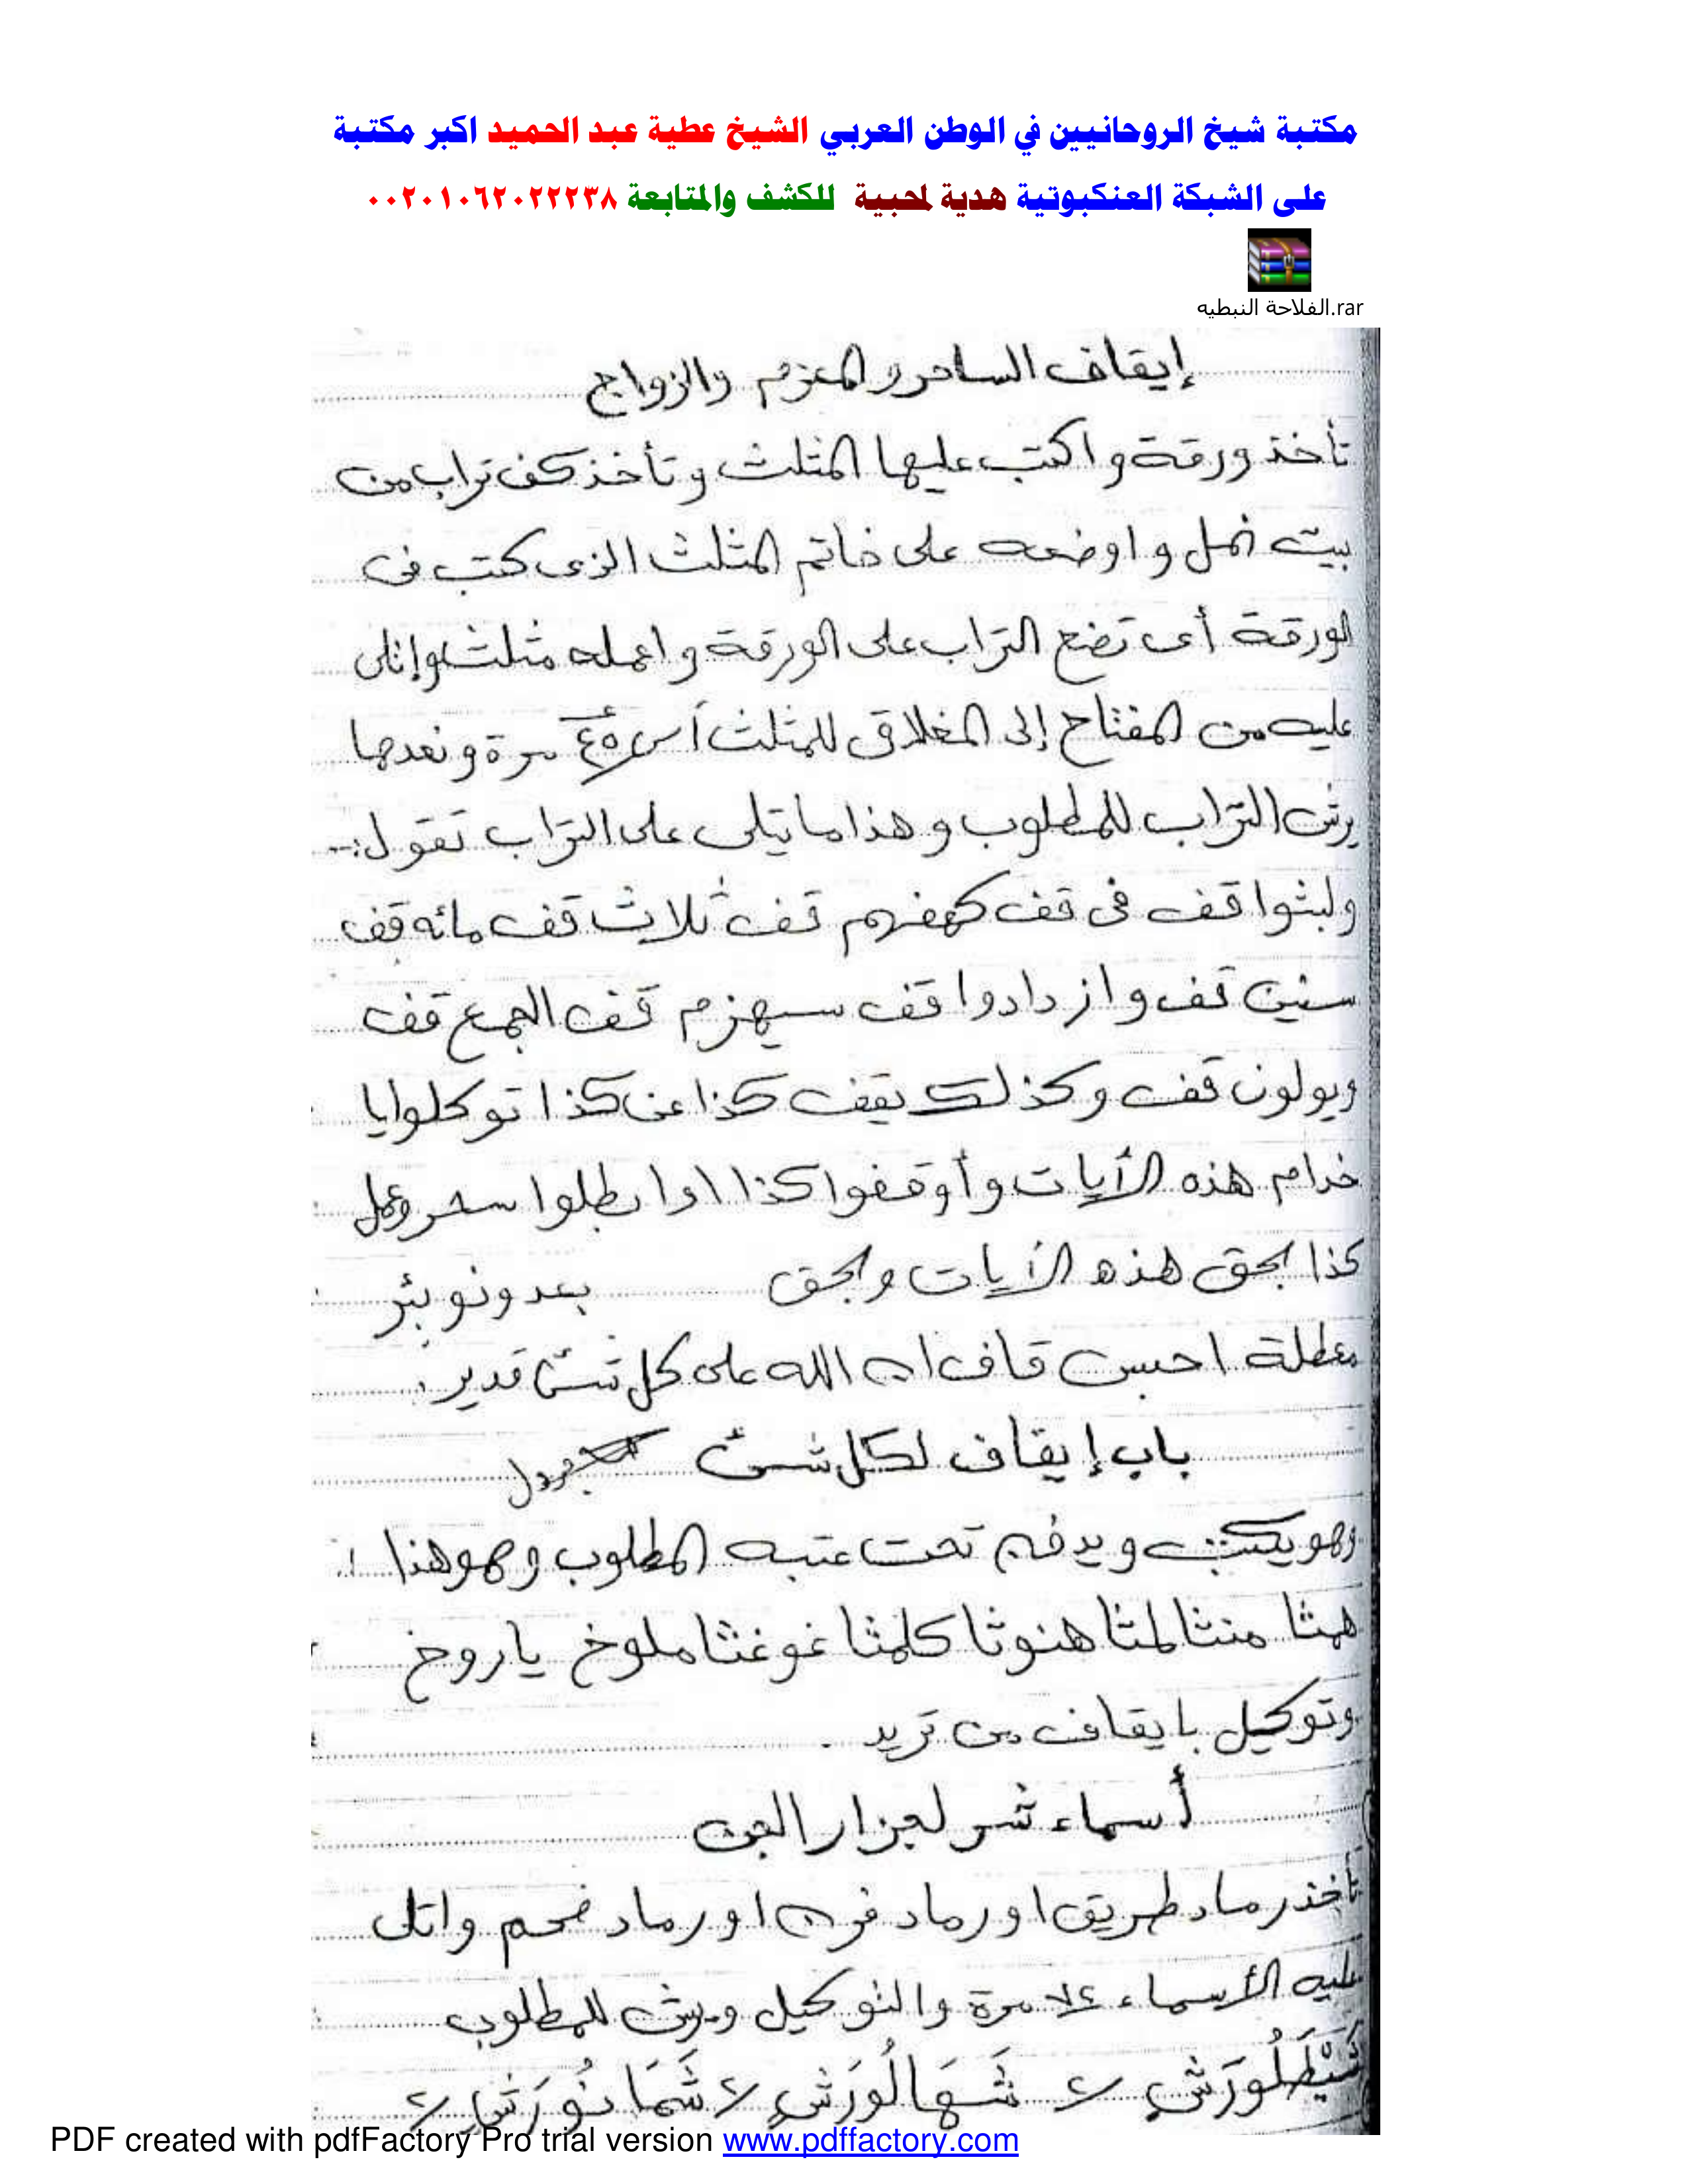 مكتبة شيخ الروحانيين في الوطن العربي الشيخ عطية عبد الحميد اكبر مكتبة
على الشبكة العنكبوتية هدية لمحبية للكشف والمتابعة ٠٠٢٠١٠٦٢٠٢٢٢٣٨
الفلاحة النبطيه.rar
إيقاف الساحر والمعزم والزواج
تأخذ ورقة واكتب عليها المثلث وتأخذ كف تراب من
بيت نمل واوضعه على خاتم المثلث الذى كتب فى
الورقة أى تضع التراب على الورقة واعمله مثلث وإتلى
عليه من المفتاح إلى المغلاق للمثلث أس ٤٥ مرة وبعدها
يرش التراب للمطلوب وهذا ما يتلى على التراب تقول:-
ولبثوا قف فى قف كهفهم قف ثلاث قف مائه قف
سنين قف وازدادوا قف سيهزم قف الجمع قف
ويولون قف وكذلك يقف كذا عن كذا توكلوا يا
خدام هذه الأيات وأوقفوا كذا اوابطلوا سحر وعمل
كذا بحق هذه الأيات وبحق بعدونو بئر
معطلة احبس قاف ان الله على كل شئ قدير.
باب إيقاف لكل شئ
وهو يكتب ويدفن تحت عتبه المطلوب وهو هذا :
همثا منثا لمثا هنوثا كلمثا غوغثا ملوخ ياروخ
وتوكيل بايقاف من تريد .
أسماء شر لجزار الجن
تأخذ رماد طريق اورماد فرن اورماد فحم واتلى
عليه الأسماء مرة والتوكيل ويرش للمطلوب
شَيْطَلُورَشٍ ٢ شَهَالُورَشٍ ٢ شَمَانُورَشٍ ٢
PDF created with pdfFactory Pro trial version www.pdffactory.com